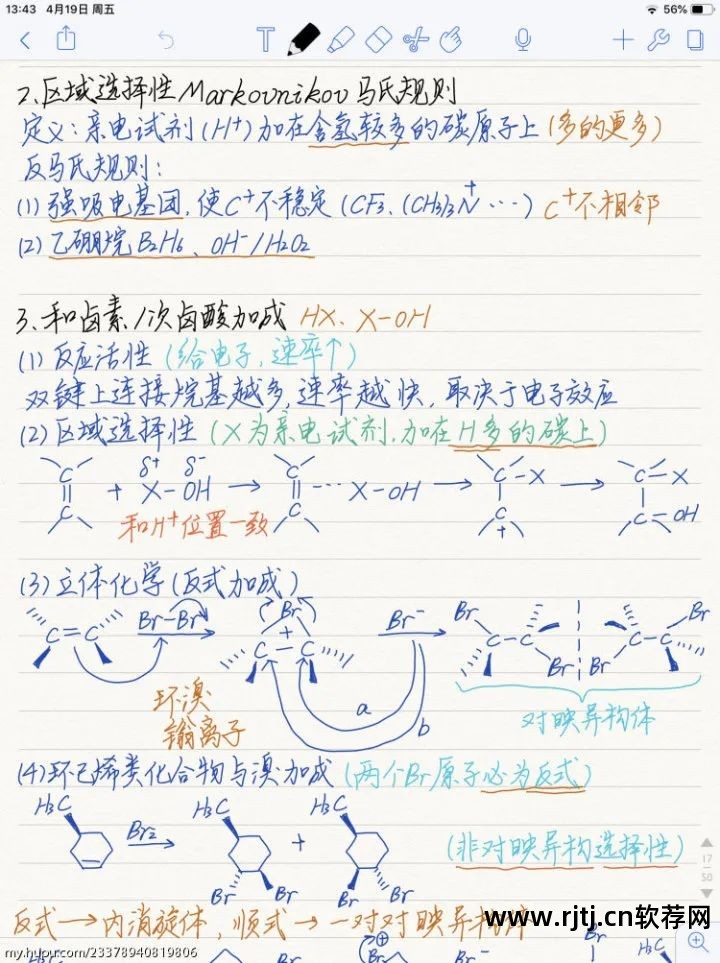 13:43 4月19日 周五
56%
2、区域选择性 Markovnikov 马氏规则
定义：亲电试剂(H+)加在含氢较多的碳原子上(多的更多)
反马氏规则：
(1) 强吸电基团，使C+不稳定(CF3、(CH3)3N+ …) C+不相邻
(2) 乙硼烷 B2H6、OH-/H2O2
3、和卤素/次卤酸加成 HX、X-OH
(1) 反应活性(给电子，速率↑)
双键上连接烷基越多，速率越快，取决于电子效应
(2) 区域选择性(X为亲电试剂，加在H多的碳上)
δ+ δ-
C C + X-OH → C C ··· X-OH → C-X C + → C-X C OH
和H+位置一致
(3) 立体化学(反式加成)
C=C Br-Br → Br + C-C Br- → Br C-C Br Br C-C Br
a
b
环溴
鎓离子
对映异构体
(4) 环己烯类化合物与溴加成(两个Br原子必为反式)
H3C Br2 → H3C Br Br + H3C Br Br
(非对映异构选择性)
反式→内消旋体，顺式→一对对映异构体
⊕
Br Br- Br H3C
17
50
www.rjtj.cn软荐网
my.hupu.com/23378940819806